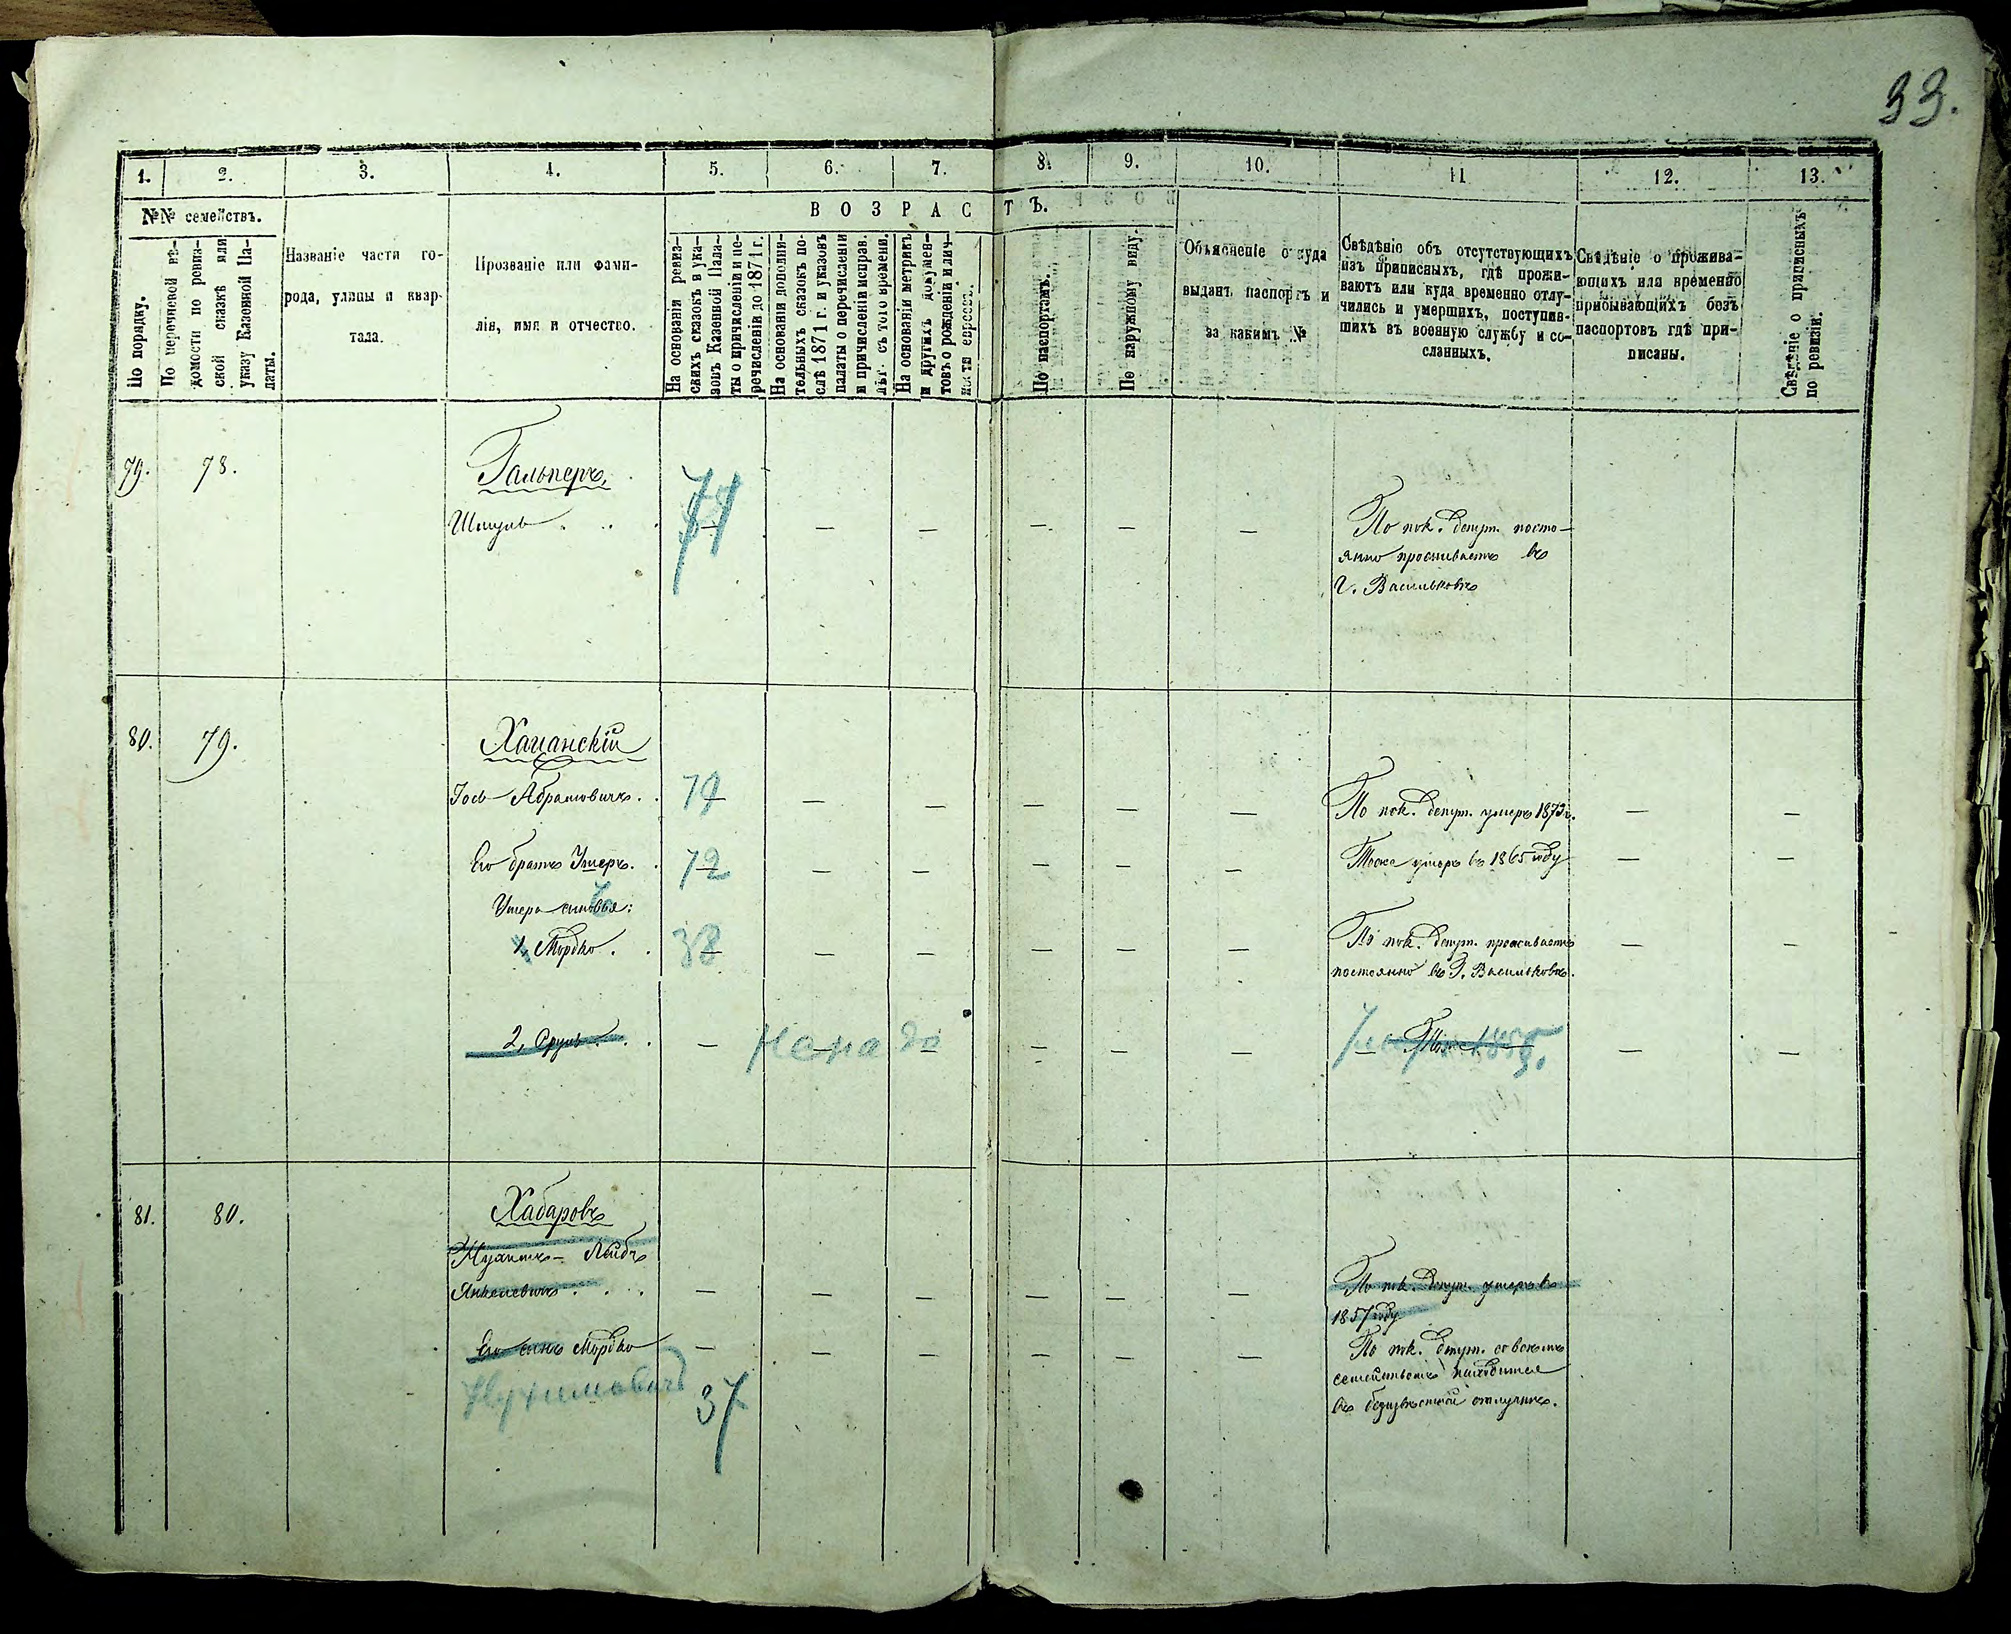 33.
1. 2. 3. 4. 5. 6. 7. 8. 9. 10. 11 12. 13.
№№ семействъ.
В О З Р А С Т Ъ.
По порядку.
По перечневой вѣ-
домости по ревиз-
ской сказкѣ или
указу Казенной Па-
латы.
Названіе части го-
рода, улицы и квар-
тала.
Прозваніе или фами-
лія, имя и отчество.
На основаніи ревиз-
скихъ сказокъ и ука-
зовъ Казенной Пала-
ты о причисленіи и пе-
речисленіи до 1871 г.
На основаніи дополни-
тельныхъ сказокъ по-
слѣ 1871 г. и указовъ
палаты о перечисленіи
и причисленіи исправ.
лѣт. съ того времени.
На основаніи метрикъ
и другихъ докумен-
товъ о рожденіи и лич-
ности евреевъ.
По паспортамъ.
По наружному виду.
Объясненіе откуда
выданъ паспортъ и
за какимъ №
Свѣдѣніе объ отсутствующихъ
изъ приписныхъ, гдѣ прожи-
ваютъ или куда временно отлу-
чились и умершихъ, поступив-
шихъ въ военную службу и со-
сланныхъ.
Свѣдѣніе о прожива-
ющихъ или временно
прибывающихъ безъ
паспортовъ гдѣ при-
писаны.
Свѣдѣніе о приписныхъ
по ревизіи.
79. 78. Гальперъ,
Шмуль . . . — — — — — По пок. депут. посто-
янно проживаетъ въ
г. Васильковѣ
80. 79. Хаганскій
Іось Абрамовичъ . . 79 — — — — — По пок. депут. умеръ 1872г. — —
Его братъ Ушеръ. . 72 — — — — — Тоже умеръ въ 1865 году — —
Ушера сыновья:
1, Мордко . . 38 — — — — — По пок. депут. проживаетъ — —
постоянно въ г. Васильковѣ.
2, Сруль . . . — Ненадо — — — — Тоже — —
81. 80. Хабаровъ
Нухимъ-Лейбъ
Янкелевичъ . . . — — — — — — По пок. депут. умеръ въ
1857 году
Его сынъ Мордко — — — — — — По пок. депут. со всемъ
семействомъ находится
Нухимовичъ 37 въ безизвѣстной отлучкѣ.